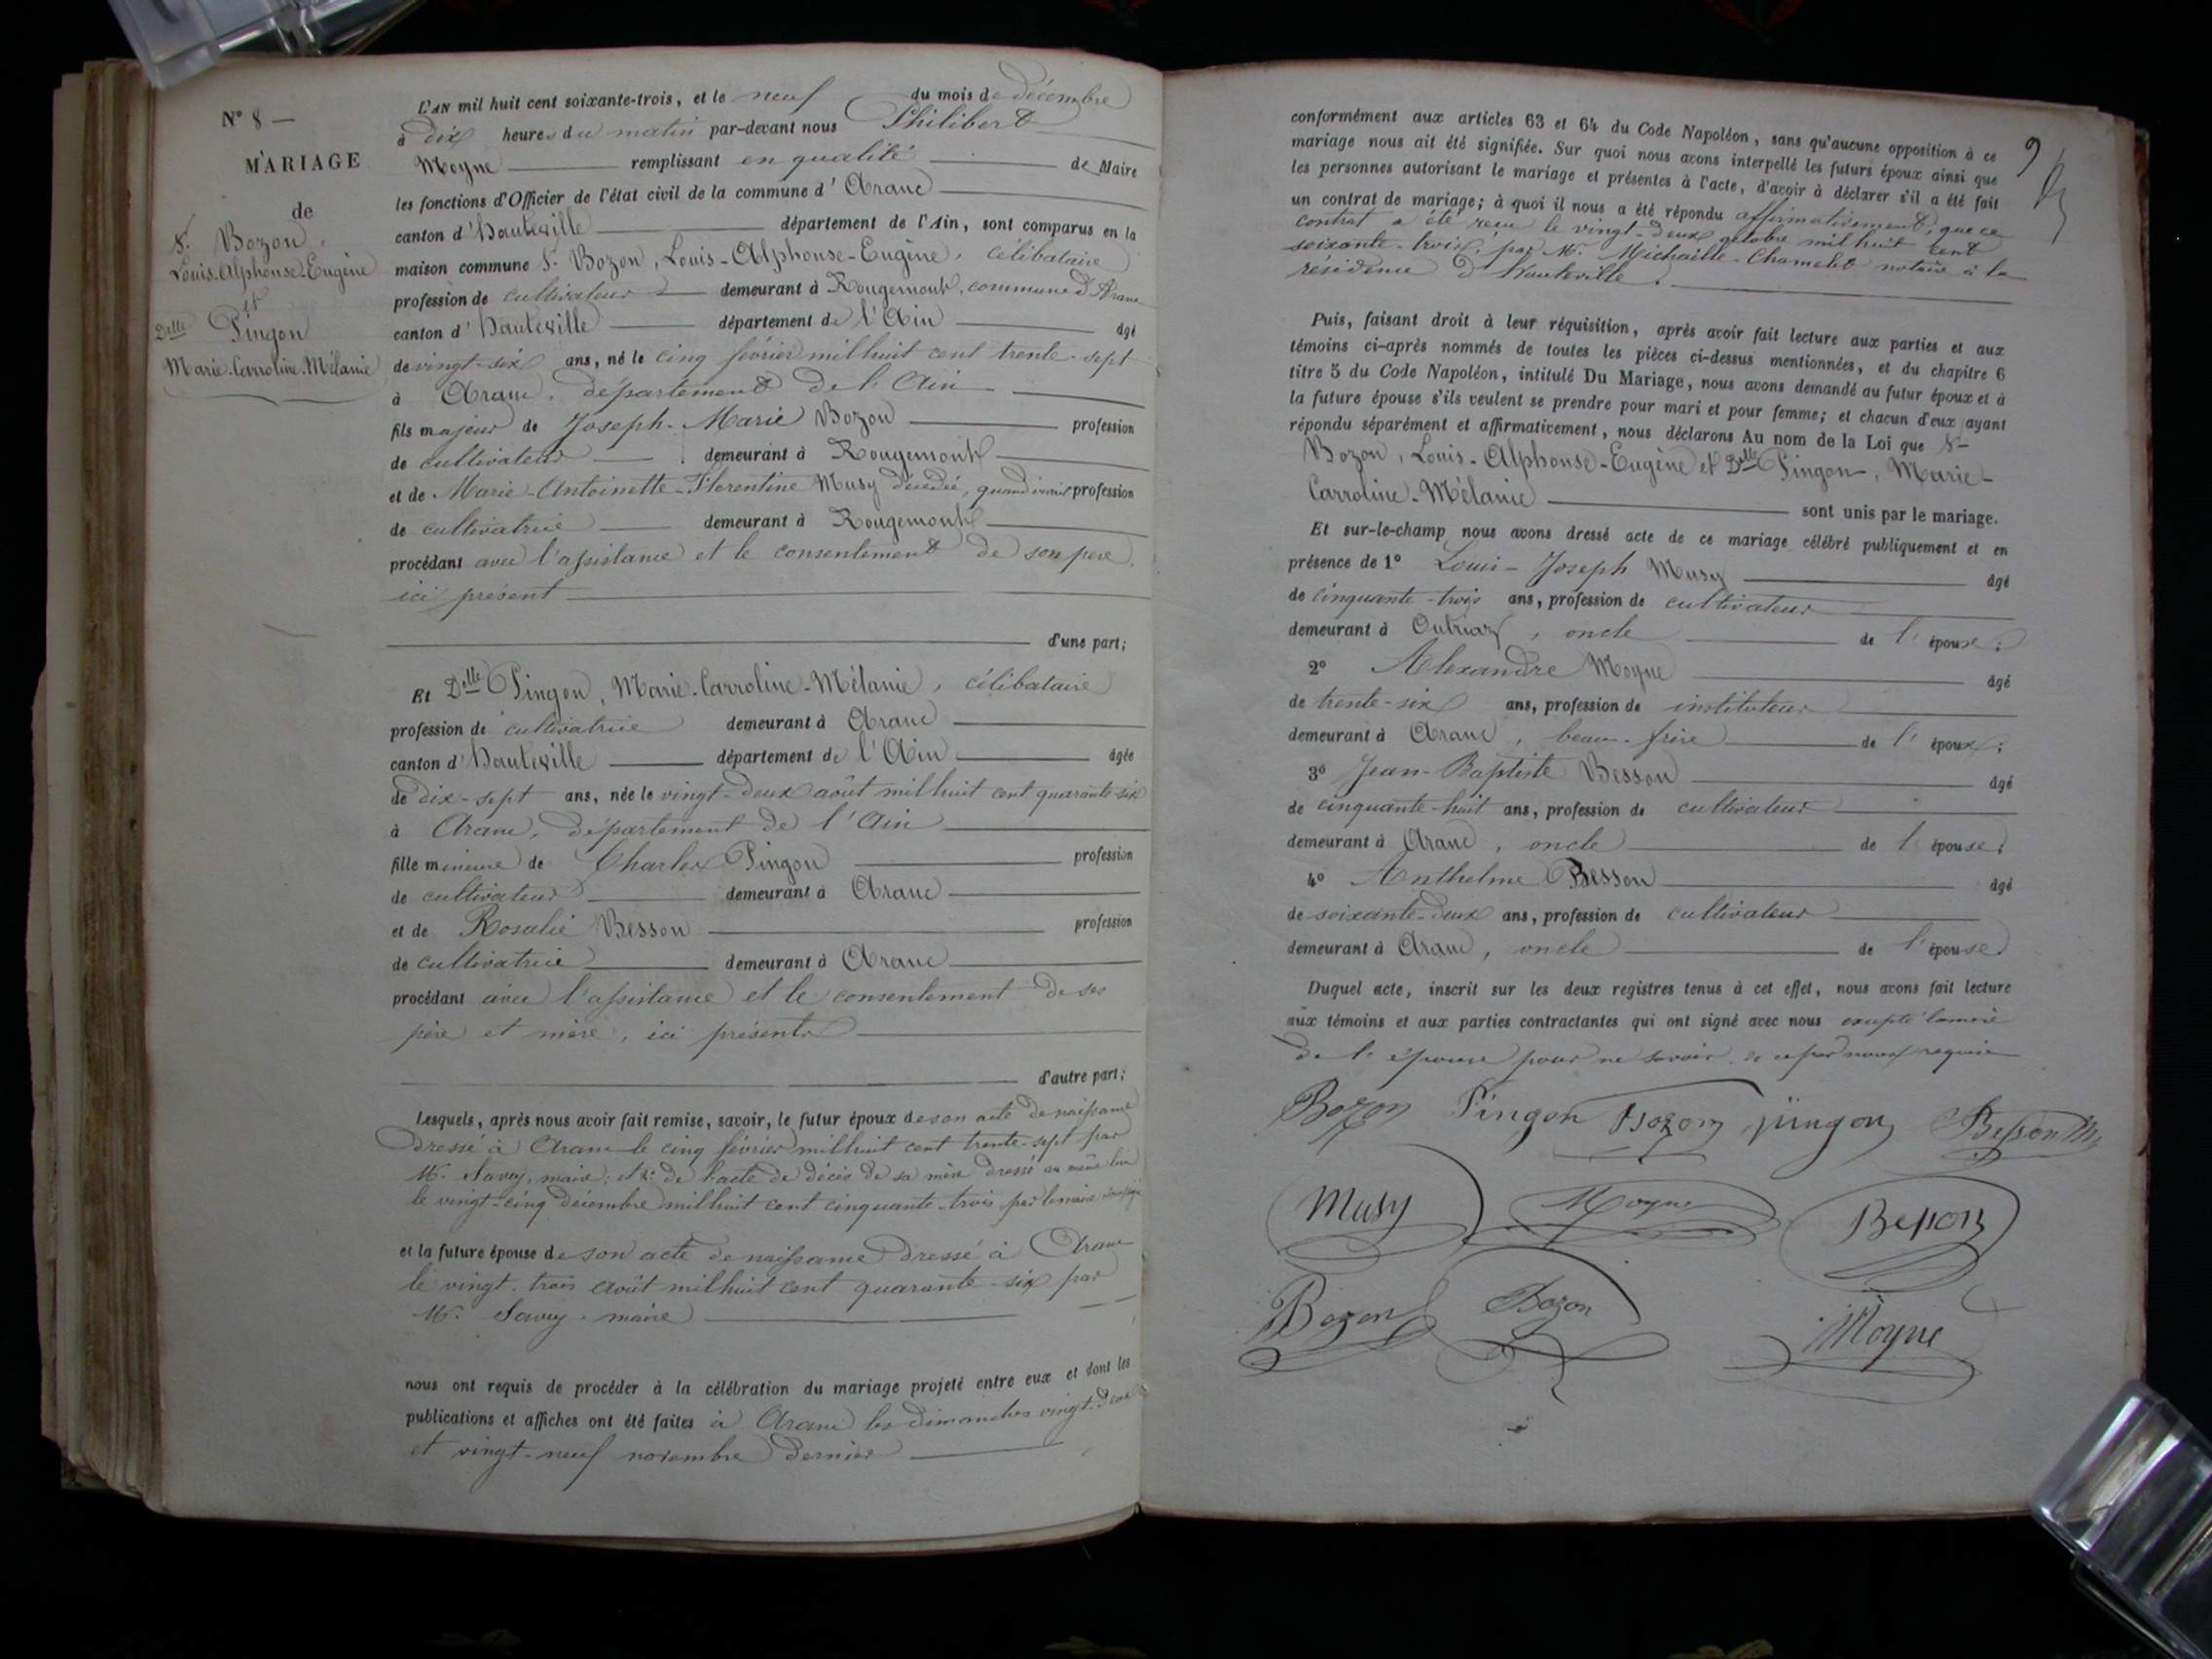 N° 8 —
MARIAGE
de
S. Bozon,
Louis-Alphonse-Eugène
et
Delle Pingon
Marie-Carroline-Mélanie
L'AN mil huit cent soixante-trois, et le neuf du mois de décembre
à dix heures du matin par-devant nous Philibert
Moyne remplissant en qualité de Maire
les fonctions d'Officier de l'état civil de la commune d'Aranc
canton d'Hauteville département de l'Ain, sont comparus en la
maison commune S. Bozon, Louis-Alphonse-Eugène, célibataire
profession de cultivateur demeurant à Rougemont, commune d'Aranc
canton d'Hauteville département de l'Ain âgé
de vingt-six ans, né le cinq février mil huit cent trente-sept
à Aranc, département de l'Ain
fils majeur de Joseph-Marie Bozon profession
de cultivateur demeurant à Rougemont
et de Marie-Antoinette-Florentine Musy décédée, quand vivait profession
de cultivatrice demeurant à Rougemont
procédant avec l'assistance et le consentement de son père,
ici présent
d'une part;
Et Delle Pingon, Marie-Carroline-Mélanie, célibataire
profession de cultivatrice demeurant à Aranc
canton d'Hauteville département de l'Ain âgée
de dix-sept ans, née le vingt-deux août mil huit cent quarante-six
à Aranc, département de l'Ain
fille mineure de Charles Pingon profession
de cultivateur demeurant à Aranc
et de Rosalie Besson profession
de cultivatrice demeurant à Aranc
procédant avec l'assistance et le consentement de ses
père et mère, ici présents
d'autre part;
Lesquels, après nous avoir fait remise, savoir, le futur époux de son acte de naissance
dressé à Aranc le cinq février mil huit cent trente-sept par
M. Savey, maire; et 2° de l'acte de décès de sa mère dressé au même lieu
le vingt-cinq décembre mil huit cent cinquante-trois par le maire soussigné
et la future épouse de son acte de naissance dressé à Aranc
le vingt-trois août mil huit cent quarante-six par
M. Savey, maire
nous ont requis de procéder à la célébration du mariage projeté entre eux et dont les
publications et affiches ont été faites à Aranc les dimanches vingt-deux
et vingt-neuf novembre dernier
9
conformément aux articles 63 et 64 du Code Napoléon, sans qu'aucune opposition à ce
mariage nous ait été signifiée. Sur quoi nous avons interpellé les futurs époux ainsi que
les personnes autorisant le mariage et présentes à l'acte, d'avoir à déclarer s'il a été fait
un contrat de mariage; à quoi il nous a été répondu affirmativement, que ce
contrat a été reçu le vingt-deux octobre mil huit cent
soixante-trois, par M. Michaille-Chamelet notaire à la
résidence d'Hauteville.
Puis, faisant droit à leur réquisition, après avoir fait lecture aux parties et aux
témoins ci-après nommés de toutes les pièces ci-dessus mentionnées, et du chapitre 6
titre 5 du Code Napoléon, intitulé Du Mariage, nous avons demandé au futur époux et à
la future épouse s'ils veulent se prendre pour mari et pour femme; et chacun d'eux ayant
répondu séparément et affirmativement, nous déclarons Au nom de la Loi que S.
Bozon, Louis-Alphonse-Eugène et Delle Pingon, Marie-
Carroline-Mélanie sont unis par le mariage.
Et sur-le-champ nous avons dressé acte de ce mariage célébré publiquement et en
présence de 1° Louis-Joseph Musy âgé
de cinquante-trois ans, profession de cultivateur
demeurant à Outriaz, oncle de l'épouse;
2° Alexandre Moyne âgé
de trente-six ans, profession de instituteur
demeurant à Aranc, beau-frère de l'époux;
3° Jean-Baptiste Besson âgé
de cinquante-huit ans, profession de cultivateur
demeurant à Aranc, oncle de l'épouse;
4° Anthelme Besson âgé
de soixante-deux ans, profession de cultivateur
demeurant à Aranc, oncle de l'épouse
Duquel acte, inscrit sur les deux registres tenus à cet effet, nous avons fait lecture
aux témoins et aux parties contractantes qui ont signé avec nous excepté la mère
de l'épouse pour ne savoir, de ce par nous requise
Bozon Pingon Bozon pingon Besson
Musy Moyne Besson
Bozon Bozon Moyne